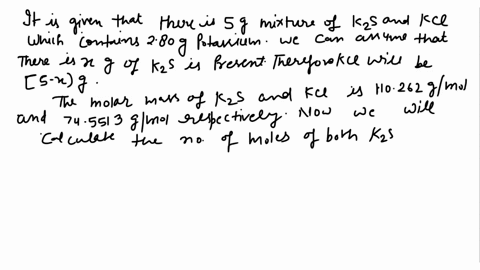 It is given that there is 5 g mixture of K2S and KCl
Which contains 2.80 g Potassium. we can assume that
There is x g of K2S is Present Therefore KCl will be
[5-x) g.
The molar mass of K2S and KCl is 110.262 g/mol
and 74.5513 g/mol respectively. Now we will
Calculate the no. of moles of both K2S